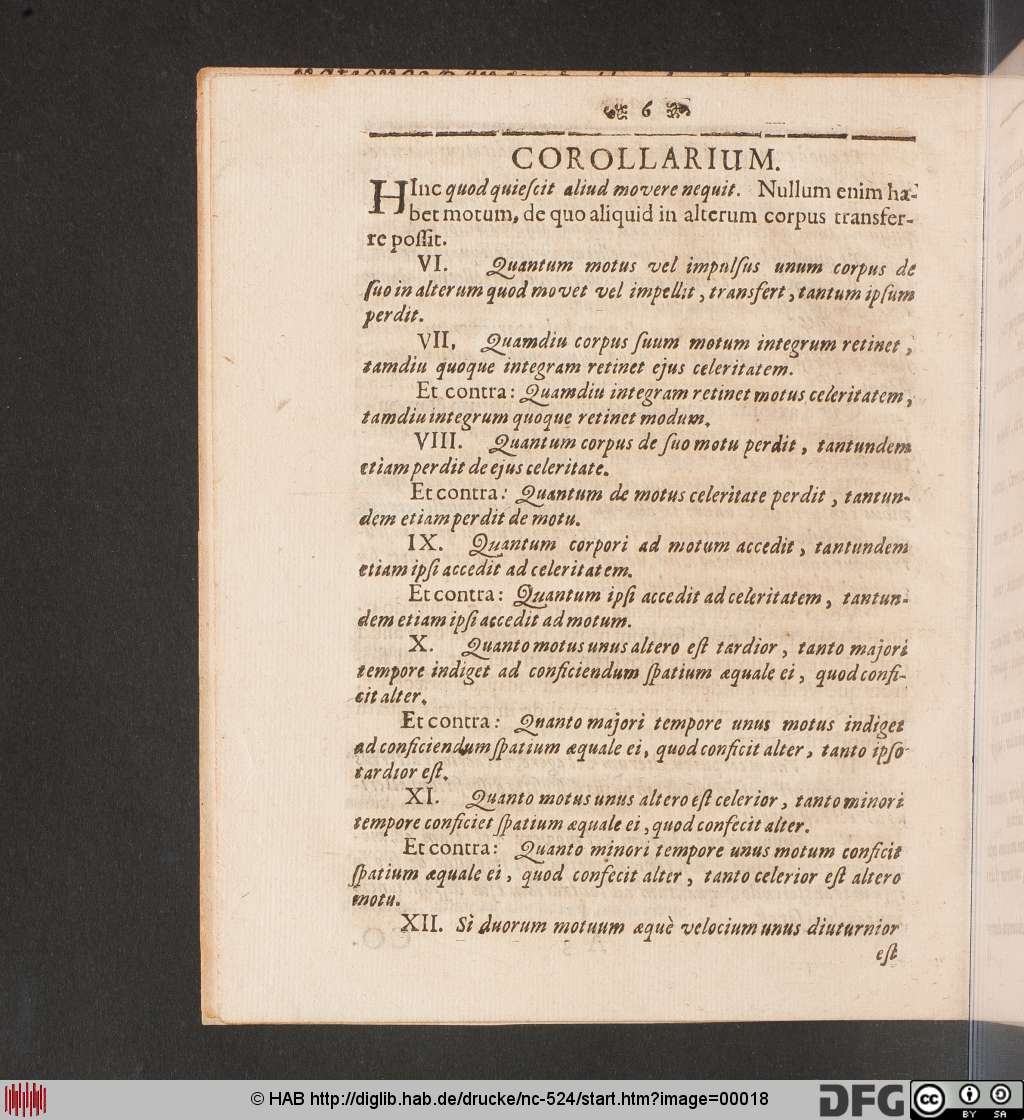 6
COROLLARIUM.
HInc quod quieſcit aliud movere nequit. Nullum enim ha-
bet motum, de quo aliquid in alterum corpus transfer-
re poſſit.
VI. Quantum motus vel impulſus unum corpus de
ſuo in alterum quod movet vel impellit, transfert, tantum ipſum
perdit.
VII. Quamdiu corpus ſuum motum integrum retinet,
tamdiu quoque integram retinet ejus celeritatem.
Et contra: Quamdiu integram retinet motus celeritatem,
tamdiu integrum quoque retinet modum.
VIII. Quantum corpus de ſuo motu perdit, tantundem
etiam perdit de ejus celeritate.
Et contra: Quantum de motus celeritate perdit, tantun-
dem etiam perdit de motu.
IX. Quantum corpori ad motum accedit, tantundem
etiam ipſi accedit ad celeritatem.
Et contra: Quantum ipſi accedit ad celeritatem, tantun-
dem etiam ipſi accedit ad motum.
X. Quanto motus unus altero eſt tardior, tanto majori
tempore indiget ad conficiendum ſpatium æquale ei, quod confi-
cit alter.
Et contra: Quanto majori tempore unus motus indiget
ad conficiendum ſpatium æquale ei, quod conficit alter, tanto ipſo
tardior eſt.
XI. Quanto motus unus altero eſt celerior, tanto minori
tempore conficiet ſpatium æquale ei, quod confecit alter.
Et contra: Quanto minori tempore unus motum conficit
ſpatium æquale ei, quod confecit alter, tanto celerior eſt altero
motu.
XII. Sì duorum motuum æquè velocium unus diuturnior
eſt
© HAB http://diglib.hab.de/drucke/nc-524/start.htm?image=00018
DFG
cc BY SA